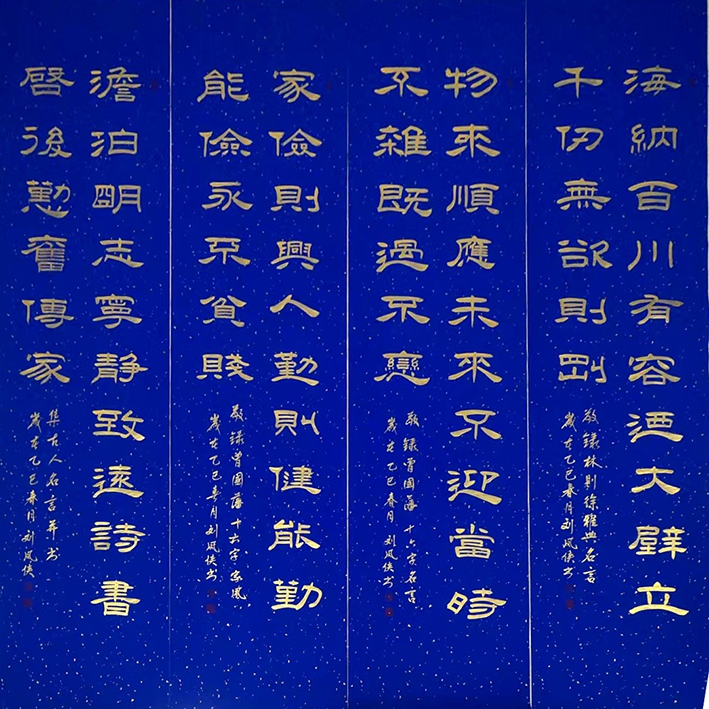 海納百川有容迺大壁立
千仞無欲則剛
敬録林則徐雅典名言
歲在乙巳春月刘凤侠书
物來順應未來不迎當時
不雜既過不戀
敬録曾國藩十六字名言
歲在乙巳春月刘凤侠书
家儉則興人勤則健能勤
能儉永不貧賤
敬録曾國藩十六字家風
歲在乙巳春月刘凤侠书
澹泊明志寧靜致遠詩書
啓後懃奮傳家
集古人名言并书
歲在乙巳春月刘凤侠